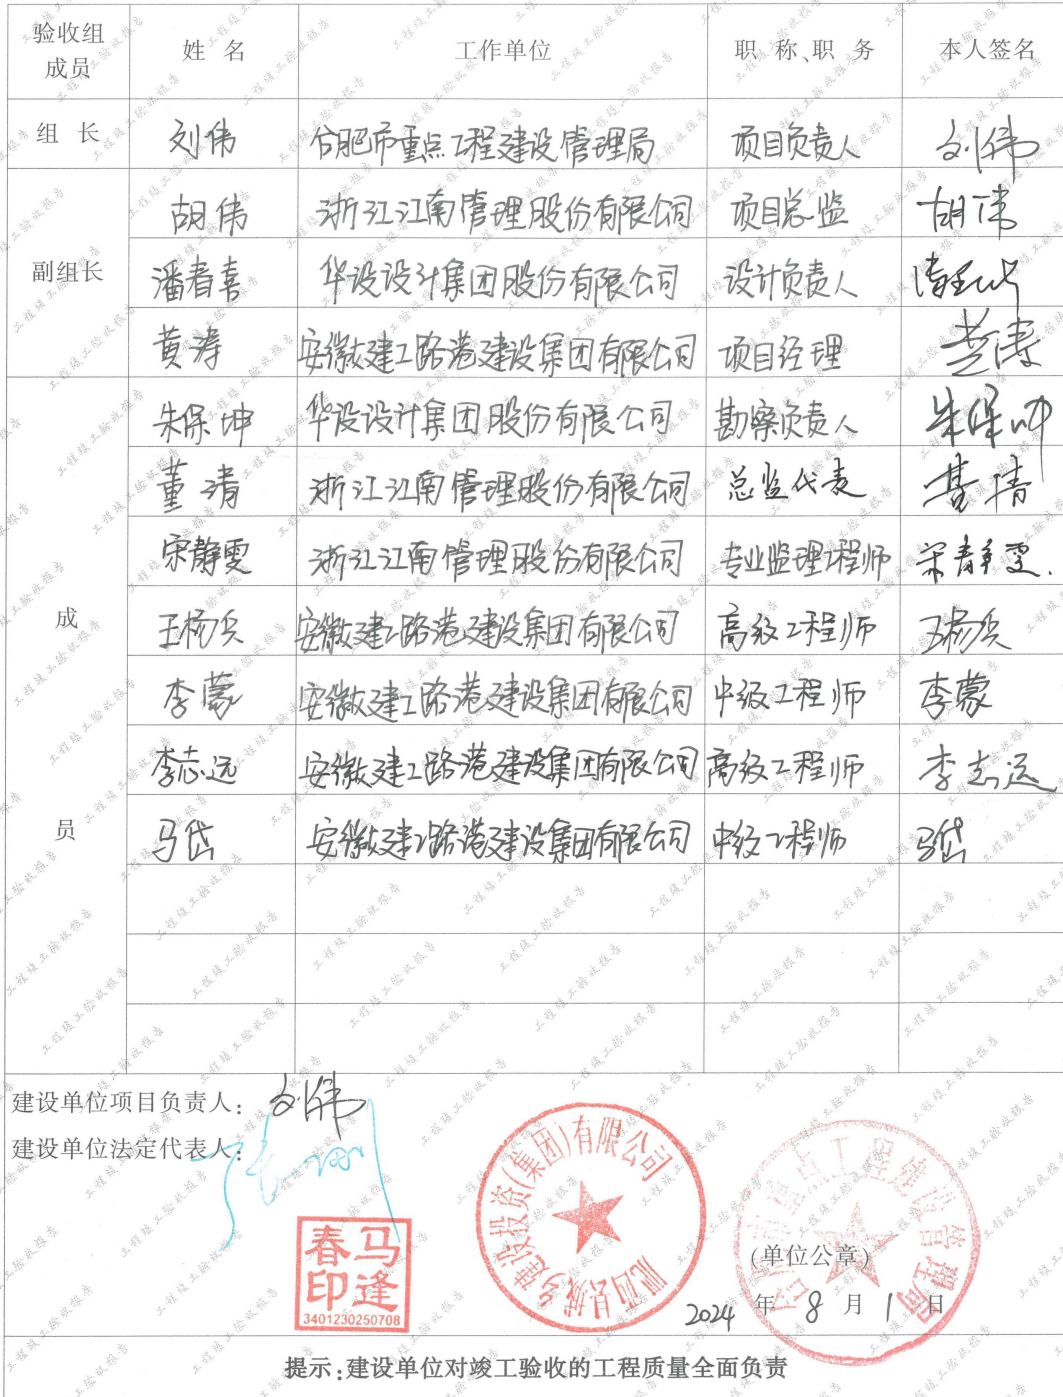 验收组成员 姓 名 工作单位 职 称、职 务 本人签名
组 长 刘伟 合肥市重点工程建设管理局 项目负责人 刘伟
副组长 胡伟 浙江江南管理股份有限公司 项目总监 胡伟
潘春喜 华设设计集团股份有限公司 设计负责人
黄涛 安徽建工路港建设集团有限公司 项目经理 黄涛
成员 朱保坤 华设设计集团股份有限公司 勘察负责人 朱保坤
董清 浙江江南管理股份有限公司 总监代表 董清
宋静雯 浙江江南管理股份有限公司 专业监理工程师 宋静雯
王杨兵 安徽建工路港建设集团有限公司 高级工程师 王杨兵
李蒙 安徽建工路港建设集团有限公司 中级工程师 李蒙
李志远 安徽建工路港建设集团有限公司 高级工程师 李志远
马岱 安徽建工路港建设集团有限公司 中级工程师 马岱
建设单位项目负责人：刘伟
建设单位法定代表人：
马逢春印
3401230250708
肥西县城乡建设投资(集团)有限公司
合肥市重点工程建设管理局
(单位公章)
2024 年 8 月 1 日
提示：建设单位对竣工验收的工程质量全面负责
工程竣工验收报告